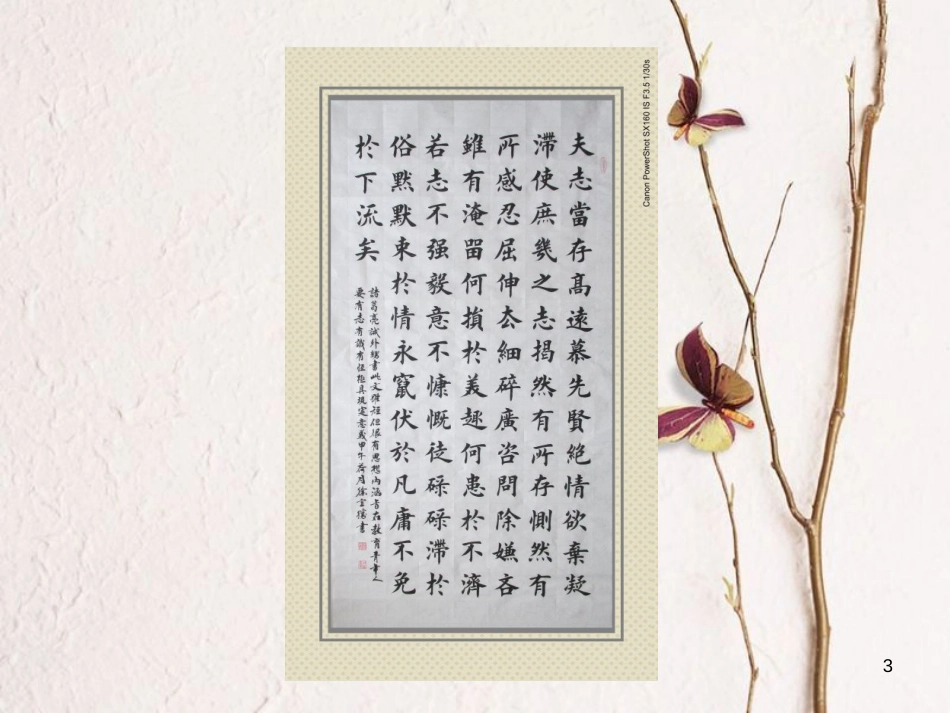 夫志當存髙遠慕先賢絶情欲棄凝
滯使庶幾之志揭然有所存惻然有
所感忍屈伸去細碎廣咨問除嫌吝
雖有淹留何損於美趣何患於不濟
若志不强毅意不慷慨徒碌碌滯於
俗默默束於情永竄伏於凡庸不免
於下流矣
諸葛亮誡外甥書此文雖短但很有思想内涵旨在教育青年人
要有志有識有恒極具現實意義甲午荷月徐書
Canon PowerShot SX160 IS F3.5 1/30s
3